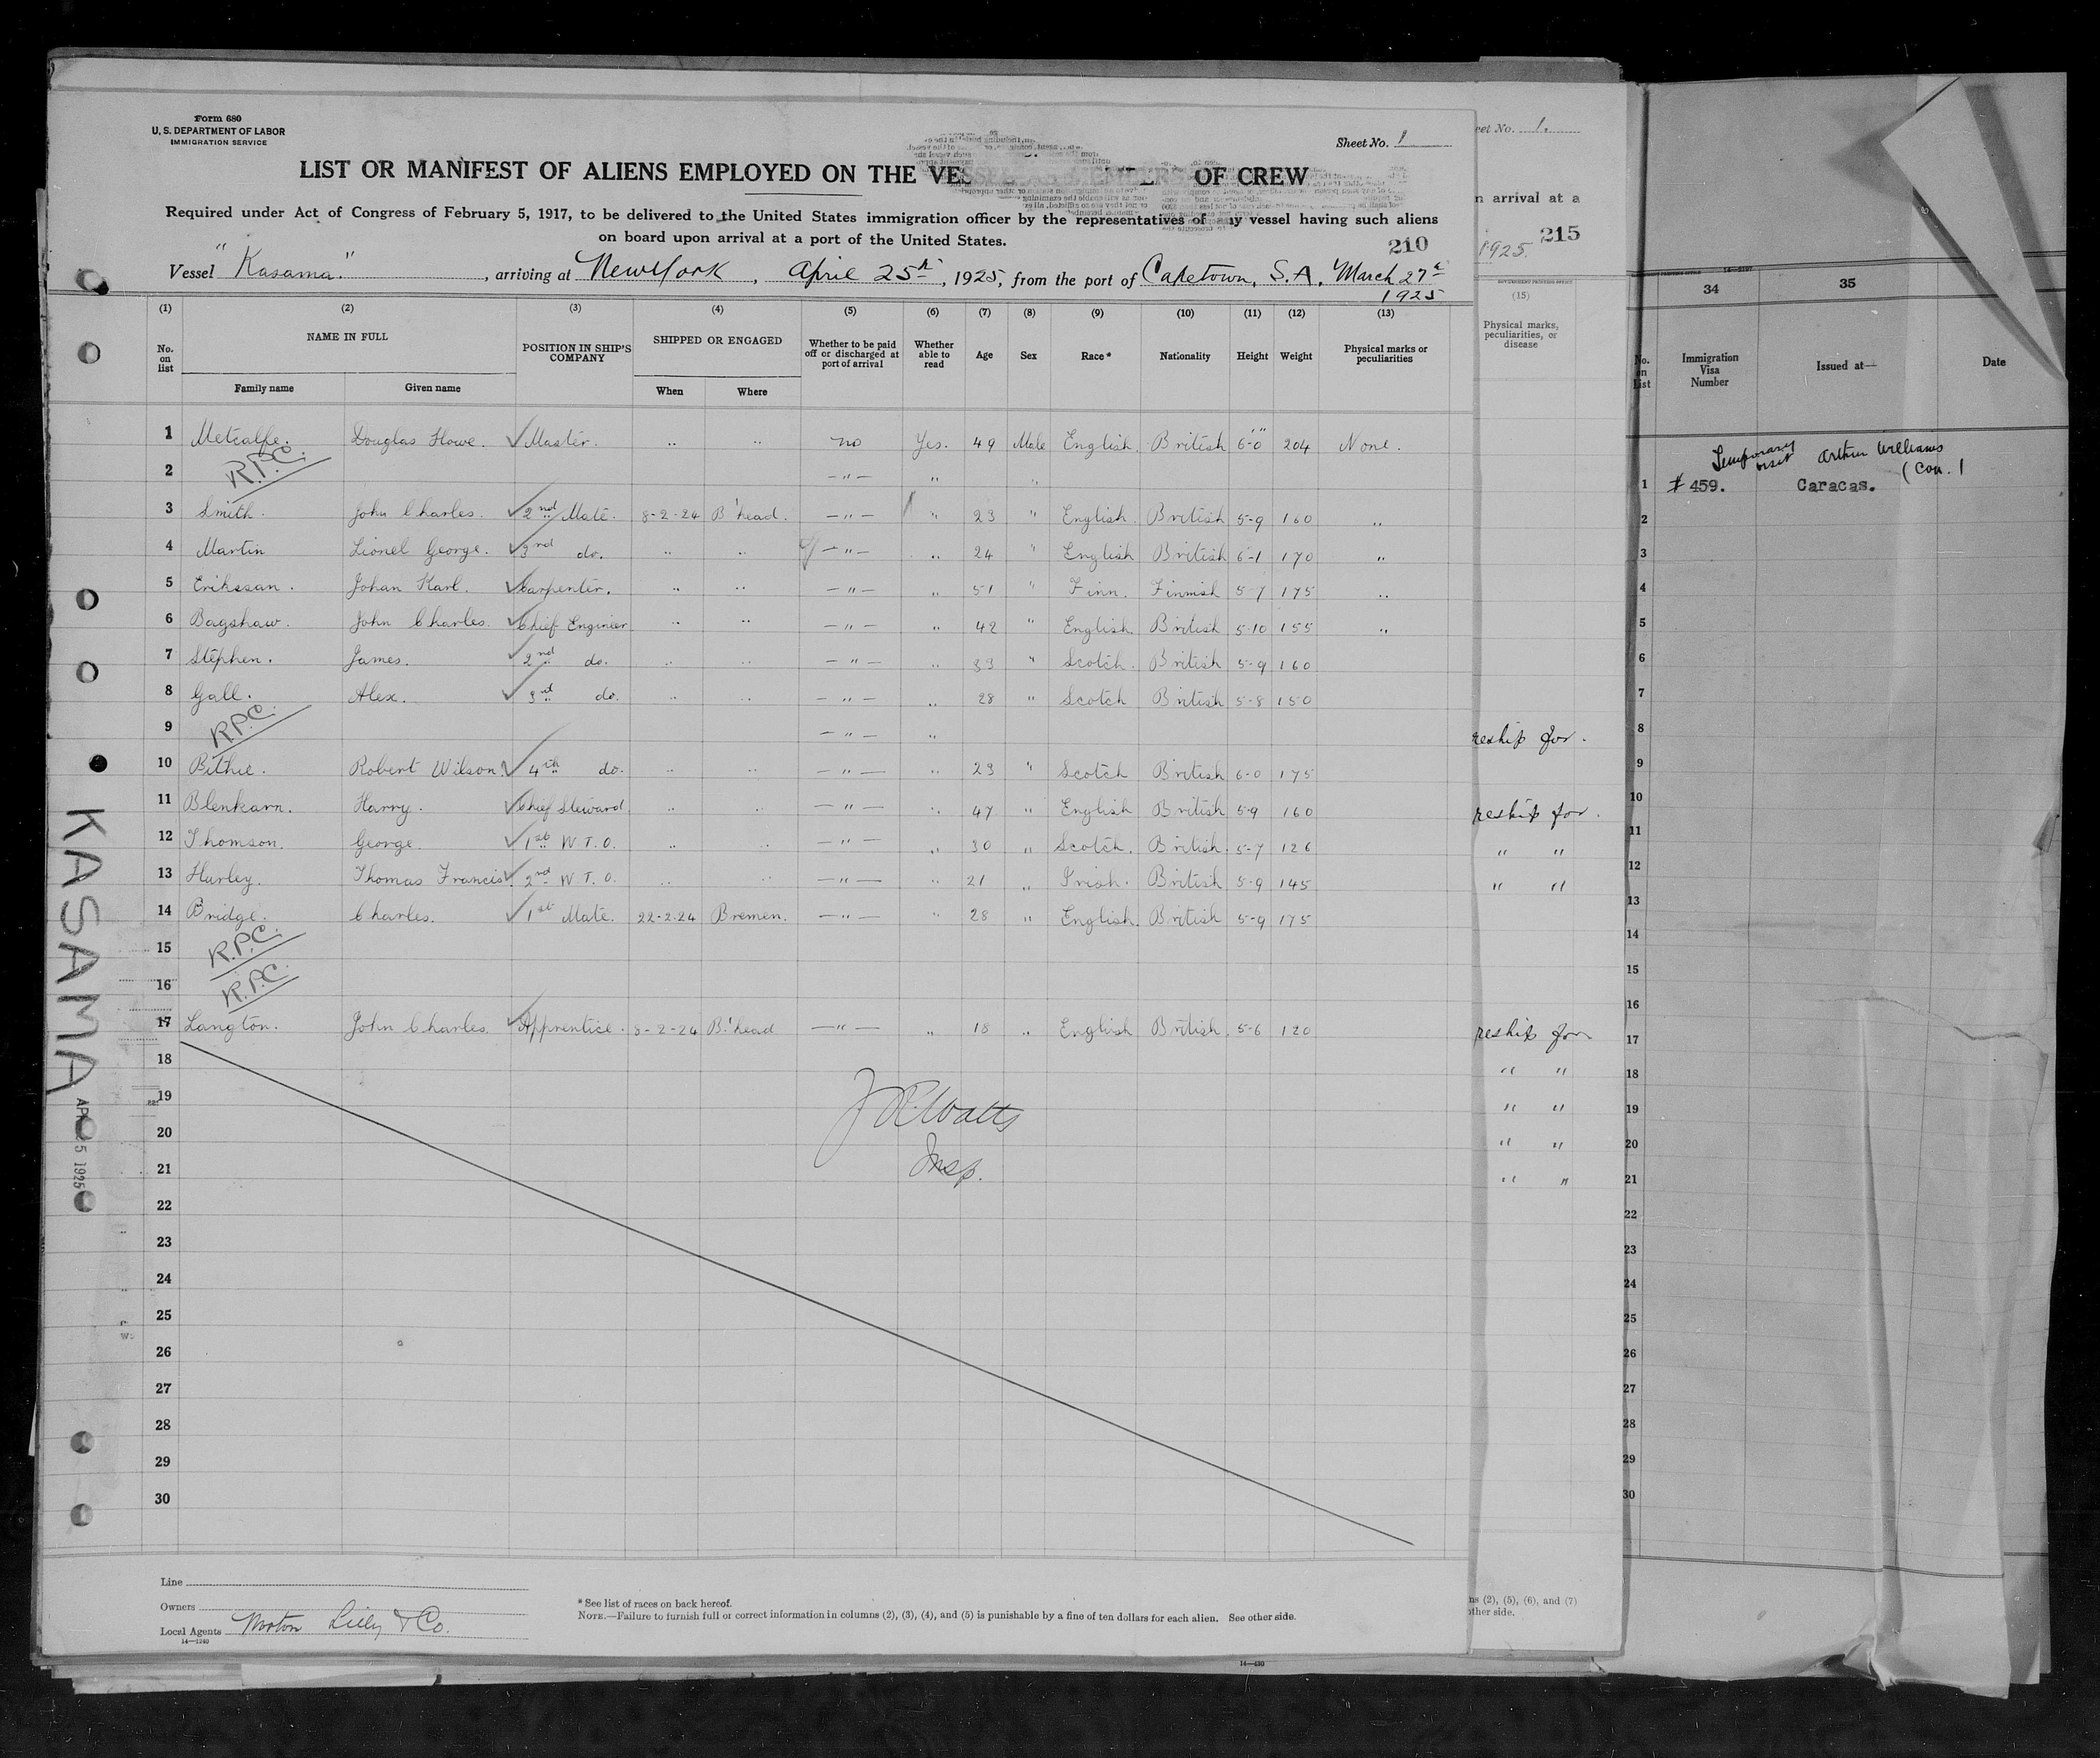 Form 680
U. S. DEPARTMENT OF LABOR
IMMIGRATION SERVICE
Sheet No. 1
LIST OR MANIFEST OF ALIENS EMPLOYED ON THE VES OF CREW
Required under Act of Congress of February 5, 1917, to be delivered to the United States immigration officer by the representatives of any vessel having such aliens
on board upon arrival at a port of the United States.
210
Vessel "Kasama", arriving at New York, April 25th, 1925, from the port of Capetown, S.A, March 27th
1925
(1) (2) (3) (4) (5) (6) (7) (8) (9) (10) (11) (12) (13)
No. on list NAME IN FULL POSITION IN SHIP'S COMPANY SHIPPED OR ENGAGED Whether to be paid off or discharged at port of arrival Whether able to read Age Sex Race* Nationality Height Weight Physical marks or peculiarities
Family name Given name When Where
1 Metcalfe. Douglas Howe. Master. " " no Yes. 49 Male English. British 6'-0" 204 None.
2 R.P.C. — " — " "
3 Smith. John Charles. 2nd Mate. 8-2-24 B'head. — " — " 23 " English. British 5-9 160 "
4 Martin Lionel George. 3rd do. " " — " — " 24 " English British 6-1 170 "
5 Erikssan. Johan Karl. Carpenter. " " — " — " 51 " Finn. Finnish 5-7 175 "
6 Bagshaw. John Charles. Chief Engineer " " — " — " 42 " English. British 5-10 155 "
7 Stephen. James. 2nd do. " " — " — " 33 " Scotch. British 5-9 160
8 Gall. Alex. 3rd do. " " — " — " 28 " Scotch British 5-8 150
9 R.P.C. — " — "
10 Bithie. Robert Wilson. 4th do. " " — " — " 23 " Scotch British 6-0 175
11 Blenkarn. Harry. Chief Steward. " " — " — " 47 " English British 5-9 160
12 Thomson. George. 1st W.T.O. " " — " — " 30 " Scotch. British. 5-7 126
13 Hurley. Thomas Francis. 2nd W.T.O. " " — " — " 21 " Irish. British 5-9 145
14 Bridge. Charles. 1st Mate. 22-2-24 Bremen. — " — " 28 " English. British 5-9 175
15 R.P.C.
16 R.P.C.
17 Langton. John Charles. Apprentice. 8-2-24 B'head — " — " 18 " English British. 5-6 120
18
19
20
21
22
23
24
25
26
27
28
29
30
Watts
Insp.
Line
Owners
Local Agents Norton Lilly & Co.
14—1240
* See list of races on back hereof.
NOTE.—Failure to furnish full or correct information in columns (2), (3), (4), and (5) is punishable by a fine of ten dollars for each alien. See other side.
KASAMA
1925
eet No. 1.
n arrival at a
1925. 215
(15)
Physical marks, peculiarities, or disease
reship for.
reship for.
" "
" "
reship for
" "
" "
" "
" "
ns (2), (5), (6), and (7)
other side.
14—430
34 35
No. on List Immigration Visa Number Issued at— Date
Temporary visit Arthur Williams
(Con.)
1 # 459. Caracas.
2
3
4
5
6
7
8
9
10
11
12
13
14
15
16
17
18
19
20
21
22
23
24
25
26
27
28
29
30